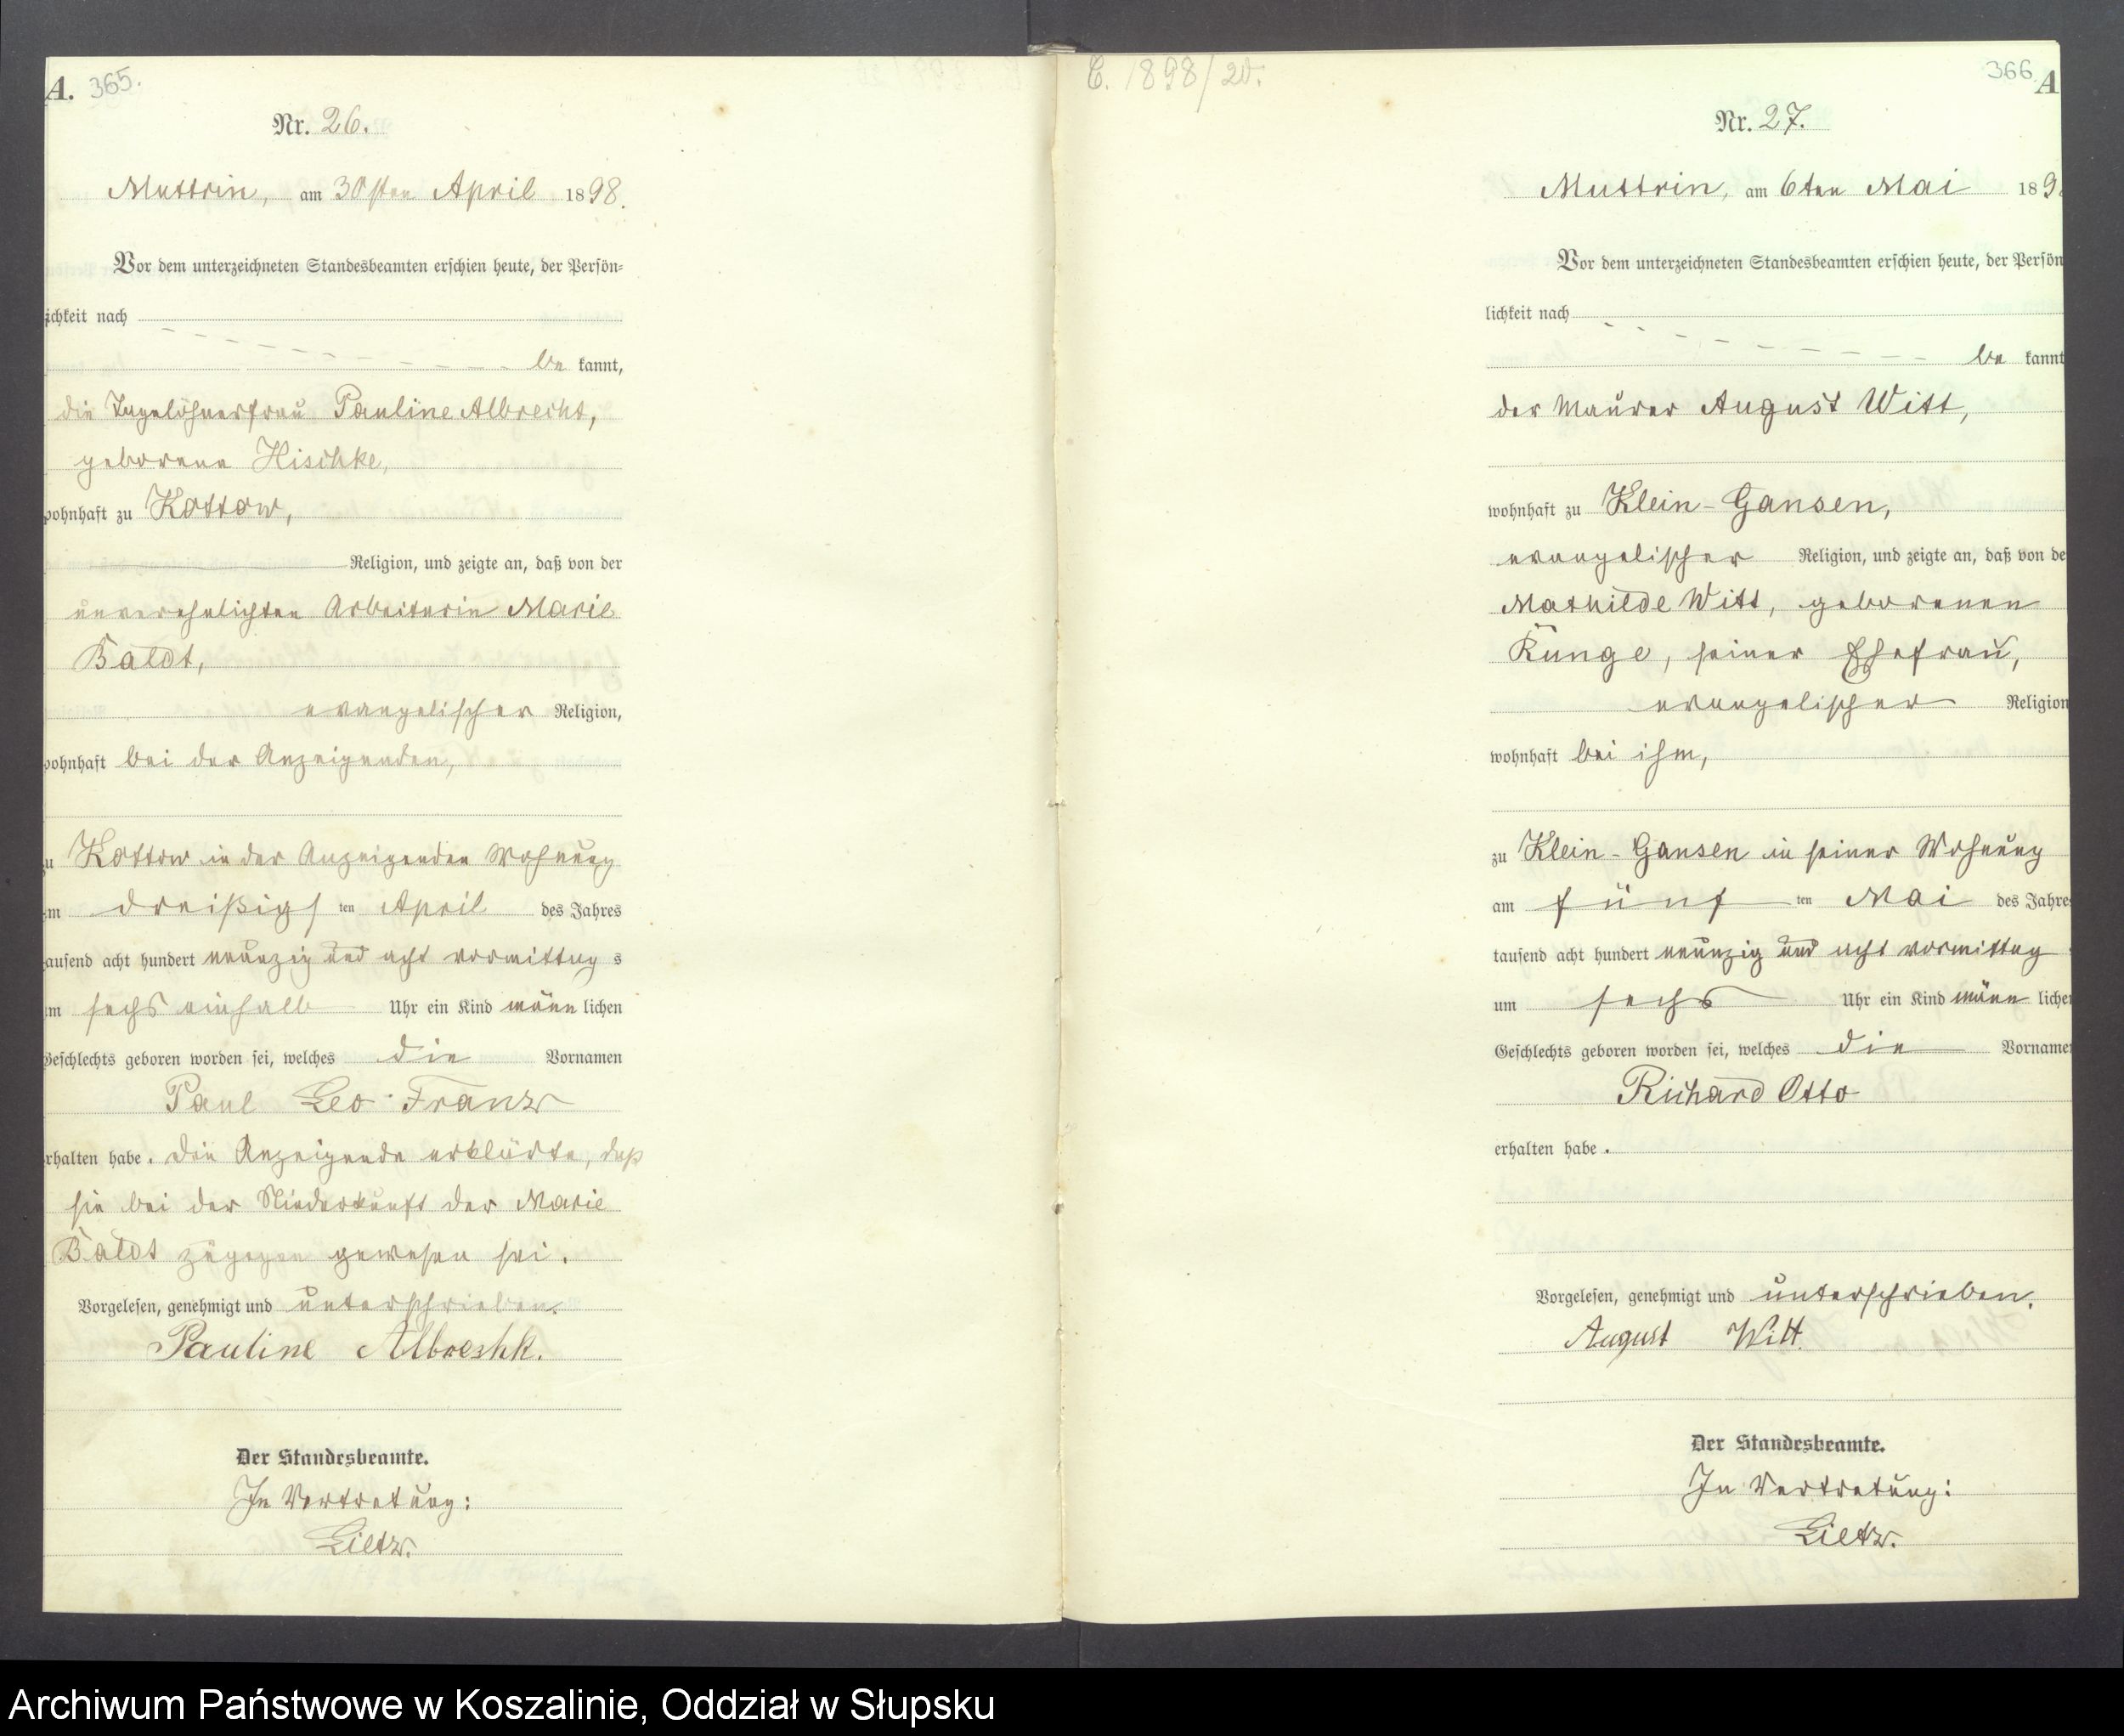 A. 365.
Nr. 26.
Muttrin, am 30sten April 1898.
Vor dem unterzeichneten Standesbeamten erschien heute, der Persön-
lichkeit nach
be kannt,
die Tagelöhnerfrau Pauline Albrecht,
geborene Hischke,
wohnhaft zu Kottow,
Religion, und zeigte an, daß von der
unverehelichten Arbeiterin Marie
Baldt,
evangelischer Religion,
wohnhaft bei der Anzeigenden,
zu Kottow in der Anzeigenden Wohnung
am dreißigsten April des Jahres
tausend acht hundert neunzig und acht vormittag s
um sechs einhalb Uhr ein Kind männ lichen
Geschlechts geboren worden sei, welches die Vornamen
Paul Leo Franz
erhalten habe. Die Anzeigende erklärte, daß
sie bei der Niederkunft der Marie
Baldt zugegen gewesen sei.
Vorgelesen, genehmigt und unterschrieben.
Pauline Albreshk.
Der Standesbeamte.
In Vertretung:
Lietz.
C. 1898/20.
366 A
Nr. 27.
Muttrin, am 6ten Mai 189
Vor dem unterzeichneten Standesbeamten erschien heute, der Persön
lichkeit nach
be kannt
der Maurer August Witt,
wohnhaft zu Klein-Gansen,
evangelischer Religion, und zeigte an, daß von de
Mathilde Witt, geborenen
Runge, seiner Ehefrau,
evangelischer Religion
wohnhaft bei ihm,
zu Klein-Gansen in seiner Wohnung
am fünf ten Mai des Jahres
tausend acht hundert neunzig und acht vormittag
um sechs Uhr ein Kind männ liche
Geschlechts geboren worden sei, welches die Vorname
Richard Otto
erhalten habe.
Vorgelesen, genehmigt und unterschrieben.
August Witt.
Der Standesbeamte.
In Vertretung:
Lietz.
Archiwum Państwowe w Koszalinie, Oddział w Słupsku